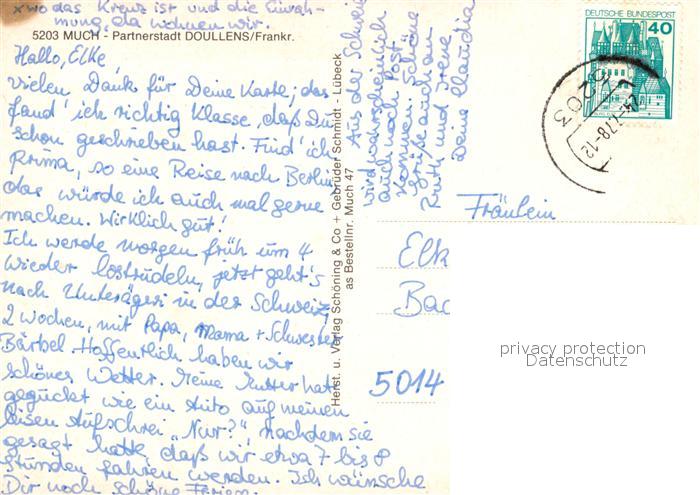 x wo das Kreuz ist und die Einrah-
mung, da wohnen wir.
5203 MUCH - Partnerstadt DOULLENS/Frankr.
Hallo, Elke
vielen Dank für Deine Karte; das
fand' ich richtig Klasse, daß Du
schon geschrieben hast. Find' ich
prima, so eine Reise nach Berlin
das würde ich auch mal gerne
machen. Wirklich gut!
Ich werde morgen früh um 4
wieder losstrudeln, jetzt geht's
nach Unterägeri in der Schweiz,
2 Wochen, mit Papa, Mama + Schwester
Bärbel. Hoffentlich haben wir
schönes Wetter. Meine Mutter hat
geguckt wie ein Auto auf meinen
leisen Aufschrei "Nur?", nachdem sie
gesagt hatte, daß wir etwa 7 bis 8
Stunden fahren werden. Ich wünsche
Dir noch schöne Ferien.
Aus der Schweiz
wird wahrscheinlich
auch noch Post
kommen. Schöne
Grüße auch an
Ruth und Irene
Deine Claudia
Herst. u. Verlag Schöning & Co + Gebrüder Schmidt - Lübeck
as Bestellnr. Much 47
DEUTSCHE BUNDESPOST
40
5203
78-12
Fräulein
Elk
Bac
5014
privacy protection
Datenschutz